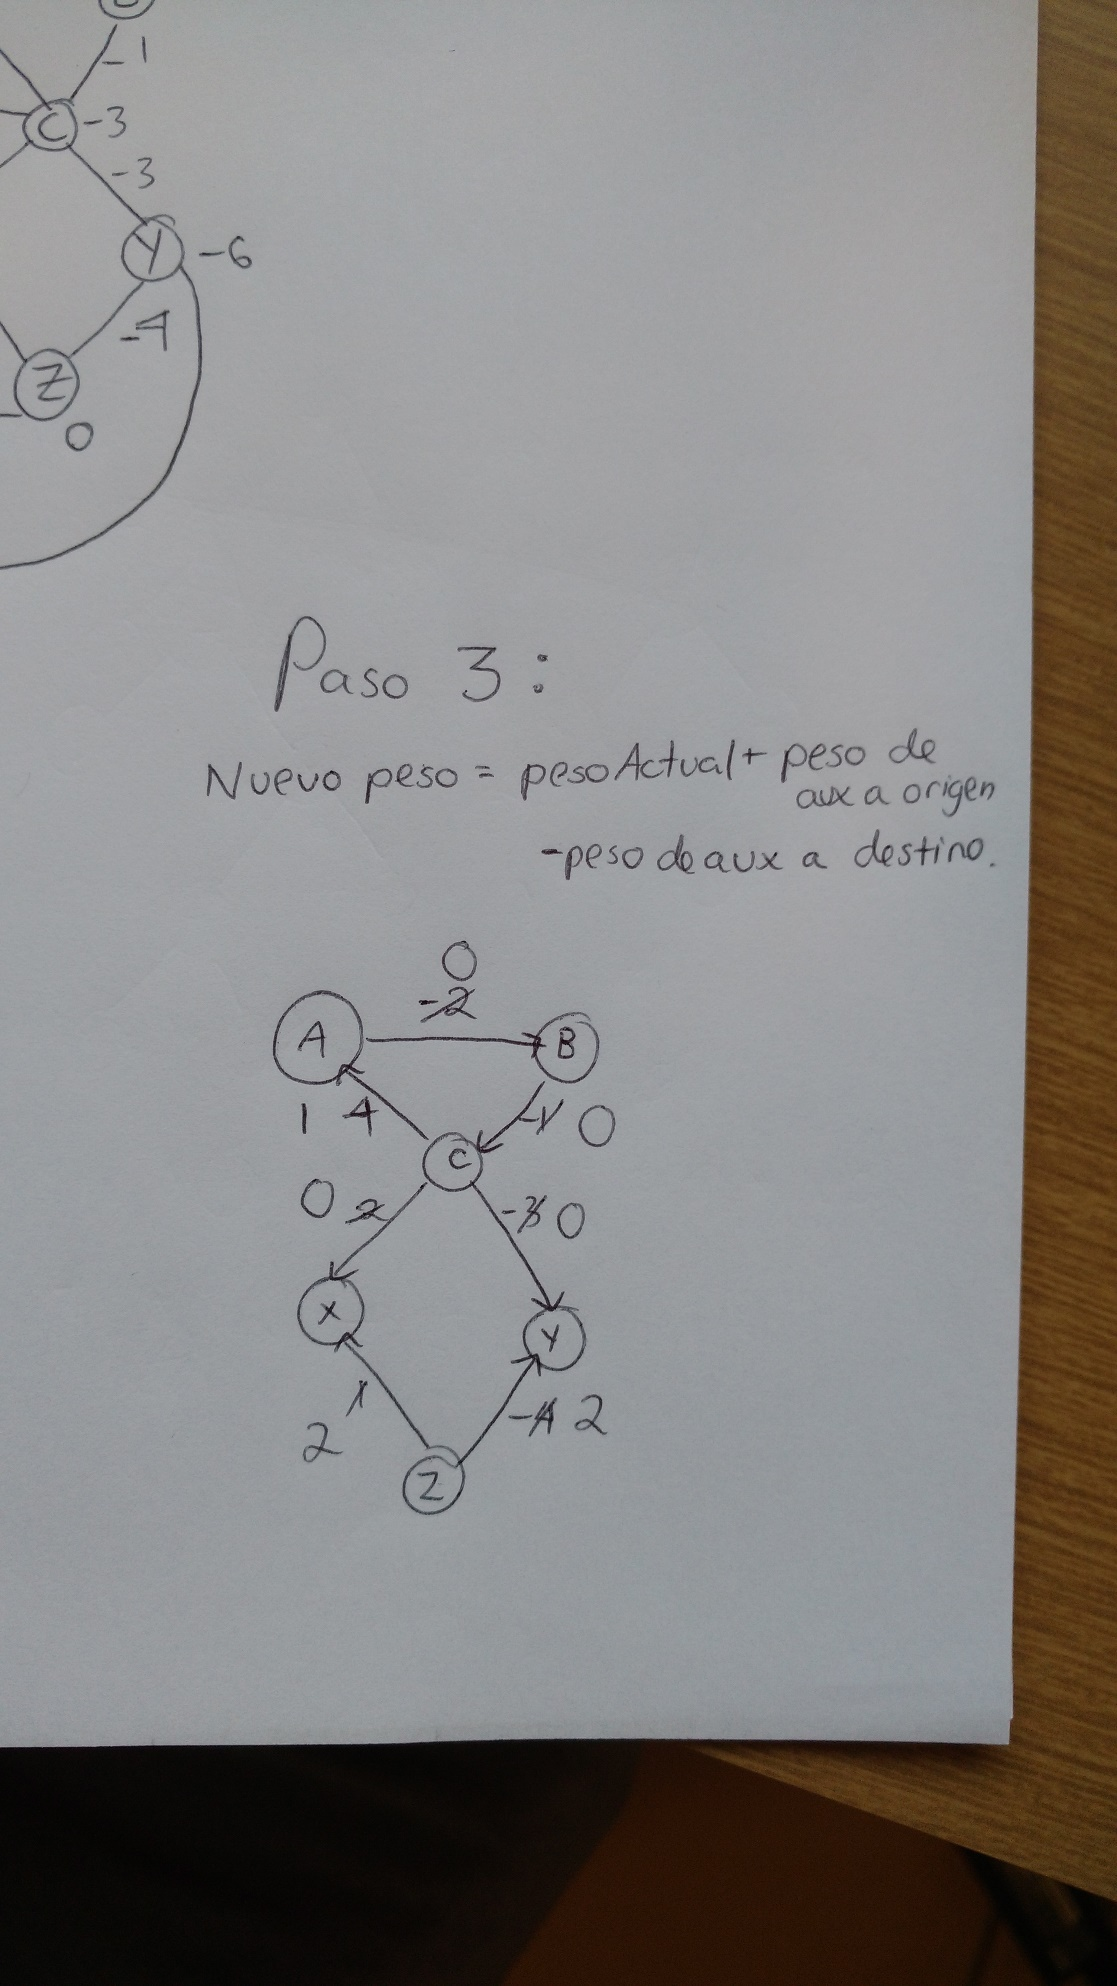 -1
C -3
-3
Y -6
-4
Z
0
Paso 3:
Nuevo peso = pesoActual + peso de
aux a origen
-peso de aux a destino.
0
-2
A B
1 4 -1 0
C
0 2 -3 0
X Y
1
2 -4 2
Z